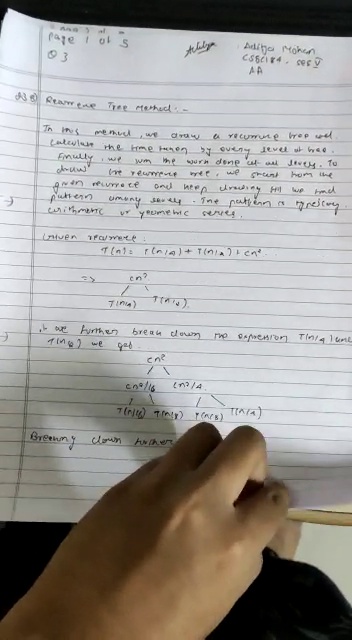 Page 1 of 5
Q 3
Aditya Mohan
CSE
AA
Recurrence Tree Method:-
In this method, we draw a recurrence tree and
calculate the time taken by every level of tree.
Finally, we sum the work done at all levels. To
draw the recurrence tree, we start from the
given recurrence and keep drawing till we find
pattern among levels. The pattern is typically
arithmetic or geometric series.
Given recurrence:
T(n) = T(n/4) + T(n/2) + cn²
=> cn²
T(n/4) T(n/2)
we further break down the expression T(n/4) and
T(n/2) we get
cn²
cn²/16 cn²/4
T(n/16) T(n/8) T(n/8) T(n/4)
Breaking down further